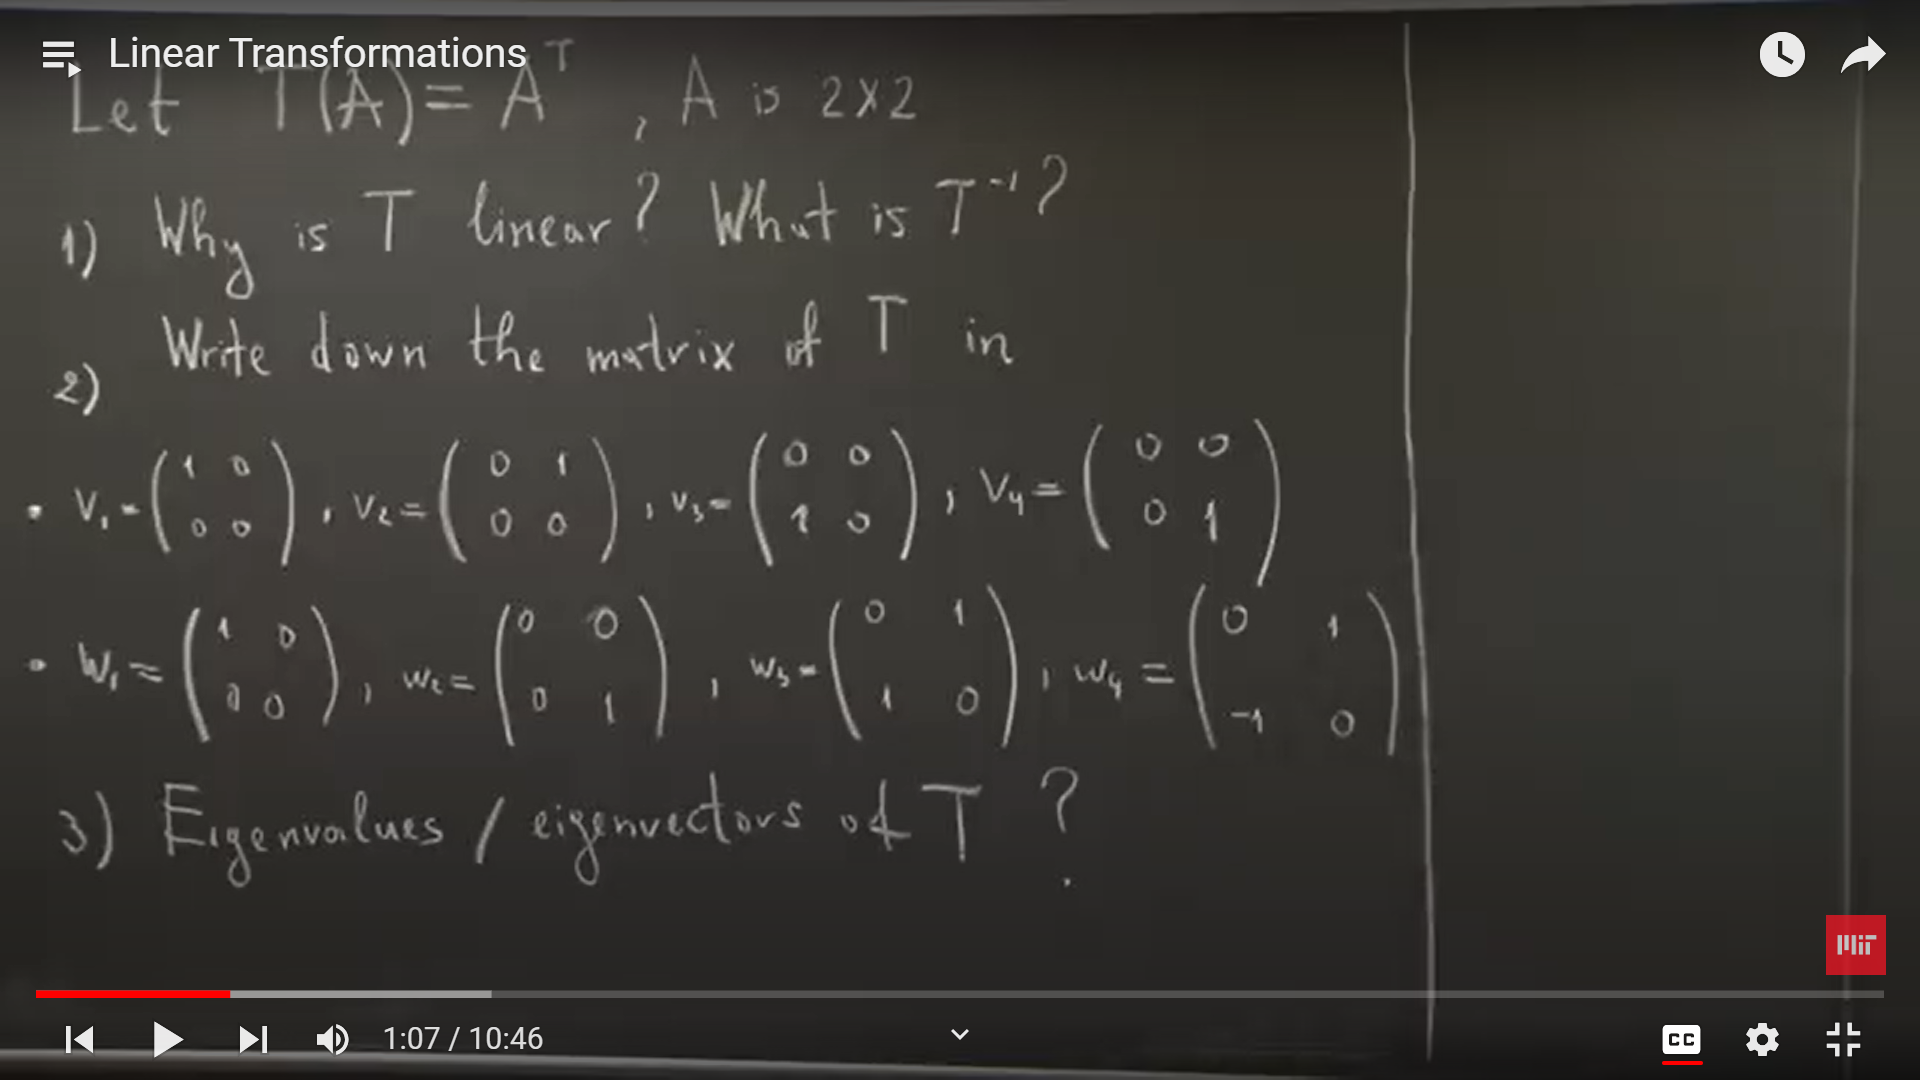 Linear Transformations
Let T(A) = A^T , A is 2x2
1) Why is T linear? What is T^-1?
2) Write down the matrix of T in
• V₁ = (1 0; 0 0), V₂ = (0 1; 0 0), V₃ = (0 0; 1 0), V₄ = (0 0; 0 1)
• W₁ = (1 0; 0 0), W₂ = (0 0; 0 1), W₃ = (0 1; 1 0), W₄ = (0 1; -1 0)
3) Eigenvalues / eigenvectors of T ?
MIT
1:07 / 10:46
CC